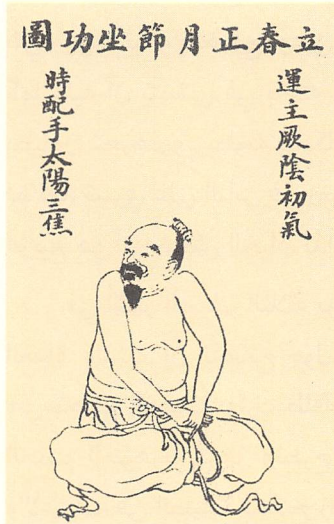 立春正月節坐功圖
運主厥陰初氣
時配手太陽三焦